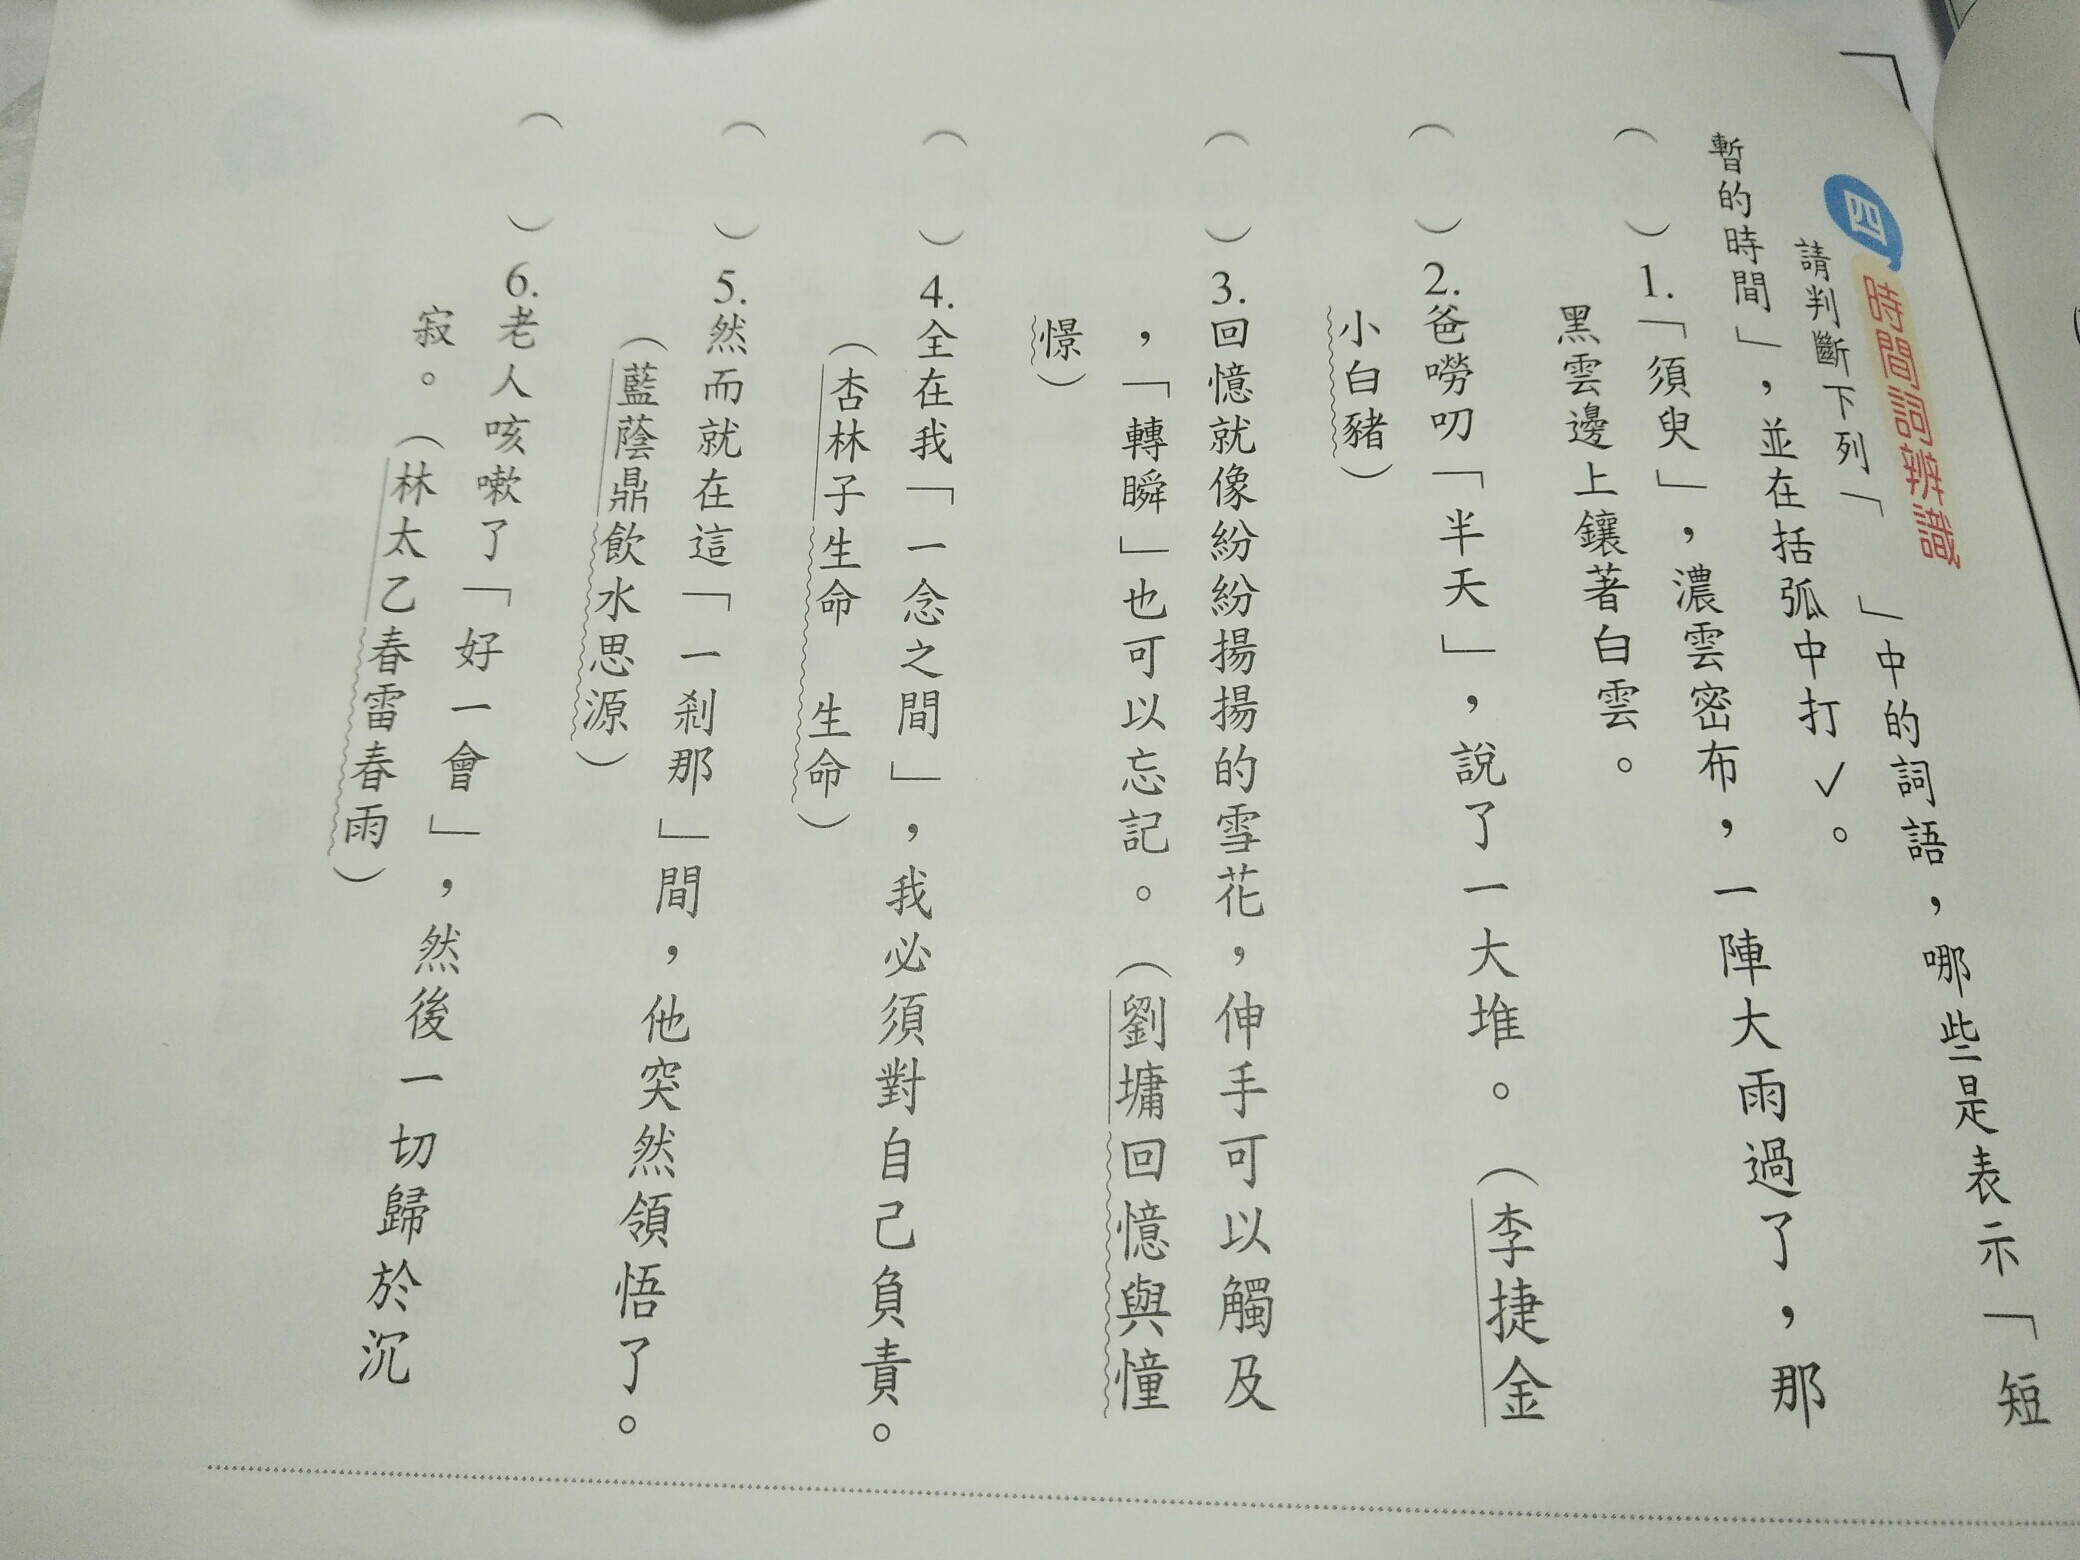 四 時間詞辨識
請判斷下列「 」中的詞語,哪些是表示「短
暫的時間」,並在括弧中打✓。
( )1.「須臾」,濃雲密布,一陣大雨過了,那
黑雲邊上鑲著白雲。
( )2.爸嘮叨「半天」,說了一大堆。(李捷金
小白豬)
( )3.回憶就像紛紛揚揚的雪花,伸手可以觸及
,「轉瞬」也可以忘記。(劉墉回憶與憧
憬)
( )4.全在我「一念之間」,我必須對自己負責。
(杏林子生命 生命)
( )5.然而就在這「一剎那」間,他突然領悟了。
(藍蔭鼎飲水思源)
( )6.老人咳嗽了「好一會」,然後一切歸於沉
寂。(林太乙春雷春雨)